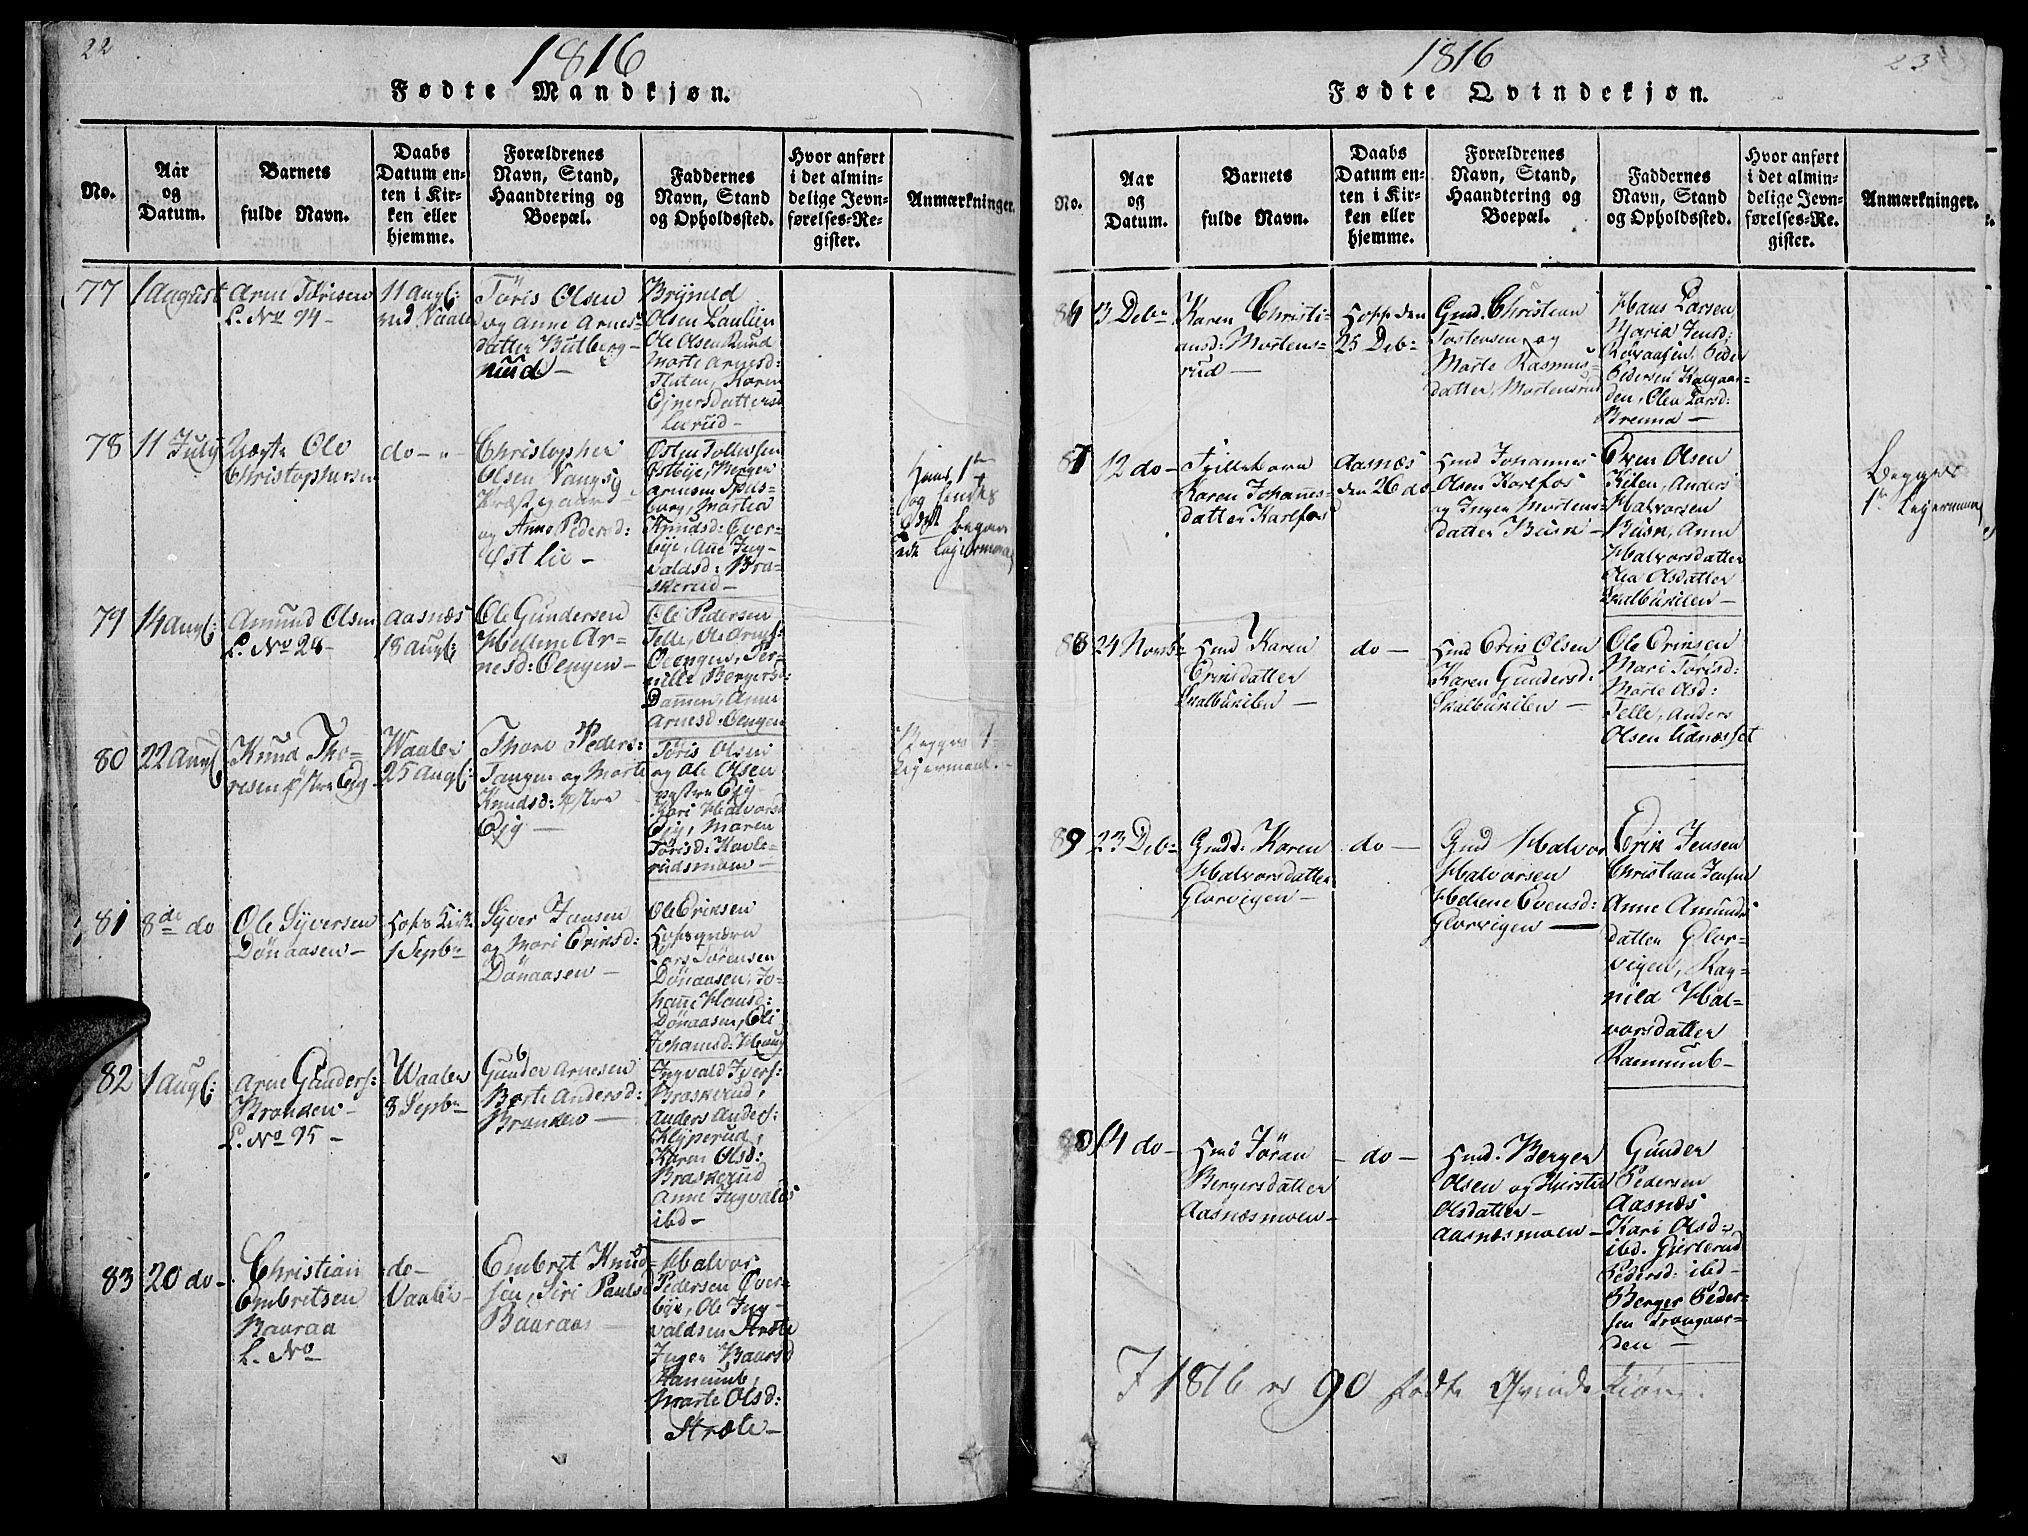 22
1816
Fødte Mandkjøn.
No.
Aar
og
Datum.
Barnets
fulde Navn.
Daabs
Datum en-
ten i Kir-
ken eller
hjemme.
Forældrenes
Navn, Stand,
Haandtering og
Boepæl.
Faddernes
Navn, Stand
og Opholdssted.
Hvor anført
i det almin-
delige Jevn-
førelses-Re-
gister.
Anmærkninger.
77
1 August
Arne Törisen
L. No 94 -
11 Augt:
ved Vaaler
Töris Olsen
og Anne Arnes-
datter Butberg-
Olsen
Ole Olsen
Marte Arnesd:
Fluten, Karen
Ejnersdatter
Lierud -
78
11 July
Uægte Ole
Christophersen
do - "
Christopher
Olsen Vangs
og Anne Pedersd:
Östlie -
Östbye, Berger
Arnesen
Knudsd: Over-
bye, Ane Ing-
valdsd: Bra-
skerud -
79
14 Augt:
Amund Olsen
L. No 28 -
Aasnæs
18 Augt:
Ole Gundersen
Hellene Ar-
nesd: Oengen -
Ole Pedersen
Telle, Ole Arnes:
Oengen, Per-
nille Bergersd:
Dammen, Anne
Arnesd: Oengen
80
22 Augt
Knud Tho-
resen østre Eig -
Waaler
25 Augt:
Thore Peders:
Tangen og Marte
Knudsd: østre
Ejg -
Töris Olsen
og Ole Olsen
østre Ejg
Kari Halvorsd
Ejg, Maren
Törisd: Kavle-
rudsmoen -
Begges 1
Lejermaal. -
81
8de do
Ole Syversen
Dönaasen -
Hofs Kirk
1 Septbr
Syver Jensen
og Mari Eriksd:
Dönaasen -
Ole Eriksen
Lars Torensen
Dönaasen, Jo-
hanne Hansd:
Dönaasen, Eli
Johannsd: Haug
82
1 Augt:
Arne Gunders:
Branden -
L. No 95 -
Waaler
8 Septbr
Gunder Arnesen
Berte Andersd:
Branden -
Ingvald Ivers:
Braskerud,
Anders Anders:
Klyperud,
Karen Olsd:
Braskerud
Anne Ingvalds
ibd -
83
20 do -
Christian
Embretsen
Bauraa
L. No
do -
Vaaler -
Embret Knud-
sen, Siri Paulsd
Bauraas -
Halvor
Pedersen Över-
bye, Ole Ing-
valdsen Stræte
Inger Baarsd
Ranumb,
Marte Olsd:
Stræte -
23
1816
Fødte Qvindekjøn.
No.
Aar
og
Datum.
Barnets
fulde Navn.
Daabs
Datum en-
ten i Kir-
ken eller
hjemme.
Forældrenes
Navn, Stand,
Haandtering og
Boepæl.
Faddernes
Navn, Stand
og Opholdssted.
Hvor anført
i det almin-
delige Jevn-
førelses-Re-
gister.
Anmærkninger.
13 Debr
Karen Christi-
ansd: Mortens-
rud -
Hoff den
25 Deb:
Gmd. Christian
Tostensen og
Marte Rasmus-
datter, Mortensrud
Hans Larsen
Maria Jensd:
Peder
Pedersen Kalgaar-
den, Olea Larsd:
Brenna -
87
12 do -
Tvillebarn
Karen Johannes-
datter Karlfos
Aasnæs
den 26 do
Hmd Johannes
Olsen Karlfos
og Inger Mortens-
datter Busk -
Even Olsen
Kilen, Anders
Halvorsen
Busk, Anne
Halvorsdatter
Olea Olsdatter
Skalbukilen -
Begges
1te Lejermaal
88
24 Novbr
Hmd Karen
Eriksdatter
Skalbukilen
do -
Hmd Erik Olsen
Karen Gundersd:
Skalbukilen -
Ole Eriksen
Mari Törisd:
Marte Olsd:
Telle, Anders
Olsen Udnæsset
89
23 Deb-
Gmdd. Karen
Halvorsdatter
Glorvigen -
do -
Gmd Halvor
Halvorsen
Helene Evensd:
Glorvigen -
Erik Jensen
Christian Jensen
Anne Amunds
datter Glor-
vigen, Rag-
nild Hal-
vorsdatter
Ranumb -
14 do -
Hmd Jöran
Bergersdatter
Aasnæsmoen -
- do -
Hmd. Berger
Olsen og Kirsten
Olsdatter -
Aasnæsmoen -
Gunder
Pedersen
Aasnæs
Kari Olsd:
ibd. Gurterud
Pedersd: ibd -
Berger Peder-
sen Trangaar-
den -
I 1816 er 90 fødte Qvindekiøn.